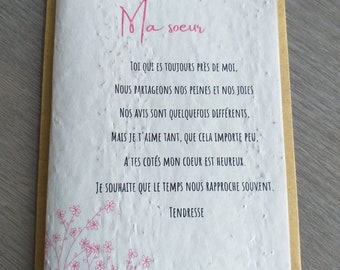 Ma soeur
Toi qui es toujours près de moi,
Nous partageons nos peines et nos joies
Nos avis sont quelquefois différents,
Mais je t'aime tant, que cela importe peu,
A tes cotés mon coeur est heureux.
Je souhaite que le temps nous rapproche souvent.
Tendresse